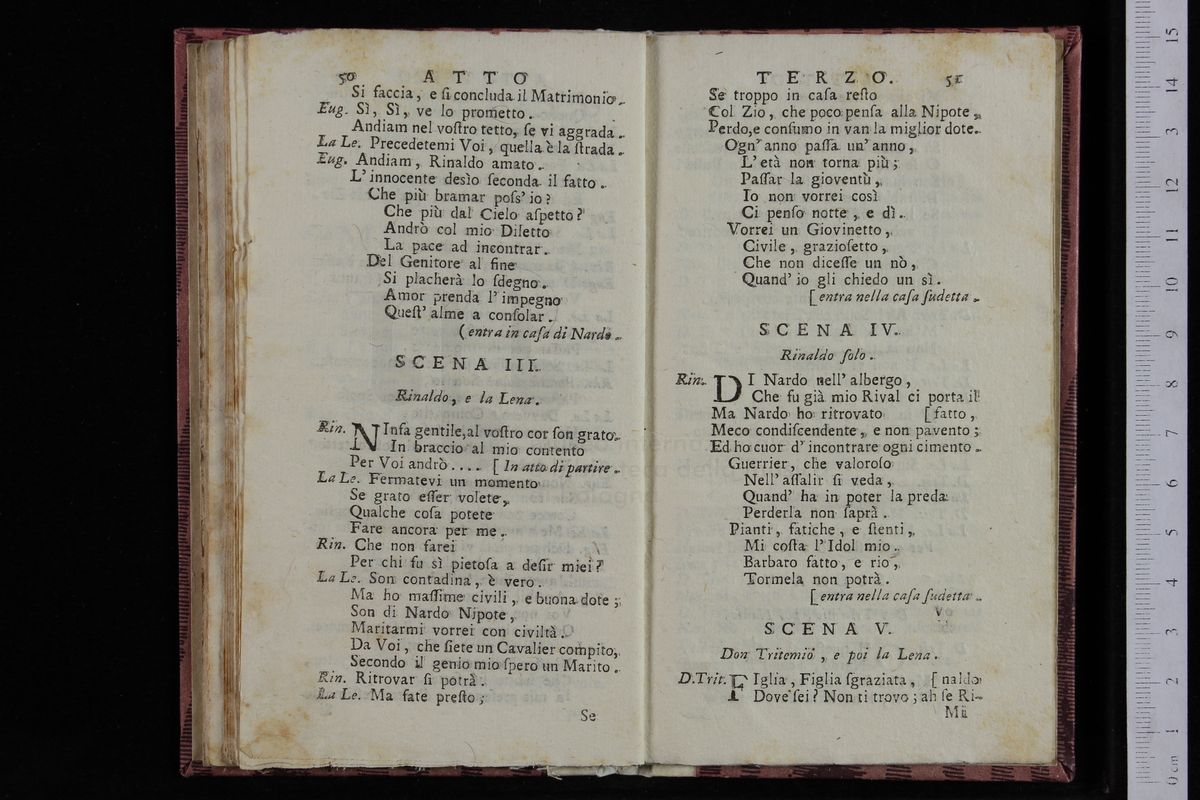 50 ATTO
Si faccia, e ſi concluda il Matrimonio.
Eug. Sì, Sì, ve lo prometto.
Andiam nel voſtro tetto, ſe vi aggrada.
La Le. Precedetemi Voi, quella è la ſtrada.
Eug. Andiam, Rinaldo amato.
L'innocente desìo ſeconda il fatto.
Che più bramar poſs'io?
Che più dal Cielo aſpetto?
Andrò col mio Diletto
La pace ad incontrar.
Del Genitore al fine
Si placherà lo ſdegno.
Amor prenda l'impegno
Queſt'alme a conſolar.
(entra in caſa di Nardo.
SCENA III.
Rinaldo, e la Lena.
Rin. NInfa gentile, al voſtro cor ſon grato.
In braccio al mio contento
Per Voi andrò .... [In atto di partire.
La Le. Fermatevi un momento
Se grato eſſer volete,
Qualche coſa potete
Fare ancora per me.
Rin. Che non farei
Per chi fu sì pietoſa a deſir miei?
La Le. Son contadina, è vero.
Ma ho maſſime civili, e buona dote;
Son di Nardo Nipote,
Maritarmi vorrei con civiltà.
Da Voi, che ſiete un Cavalier compito,
Secondo il genio mio ſpero un Marito.
Rin. Ritrovar ſi potrà.
La Le. Ma fate preſto;
Se
TERZO. 51
Se troppo in caſa reſto
Col Zio, che poco penſa alla Nipote,
Perdo, e conſumo in van la miglior dote.
Ogn'anno paſſa un'anno,
L'età non torna più;
Paſſar la gioventù,
Io non vorrei così
Ci penſo notte, e dì.
Vorrei un Giovinetto,
Civile, grazioſetto,
Che non diceſſe un nò,
Quand'io gli chiedo un sì.
[entra nella caſa ſudetta.
SCENA IV.
Rinaldo ſolo.
Rin. DI Nardo nell'albergo,
Che fu già mio Rival ci porta il
Ma Nardo ho ritrovato [fatto,
Meco condiſcendente, e non pavento;
Ed ho cuor d'incontrare ogni cimento.
Guerrier, che valoroſo
Nell'aſſalir ſi veda,
Quand'ha in poter la preda
Perderla non ſaprà.
Pianti, fatiche, e ſtenti,
Mi coſta l'Idol mio.
Barbaro fatto, e rio,
Tormela non potrà.
[entra nella caſa ſudetta.
SCENA V.
Don Tritemio, e poi la Lena.
D.Trit. FIglia, Figlia ſgraziata, [naldo
Dove ſei? Non ti trovo; ah ſe Ri-
Mii